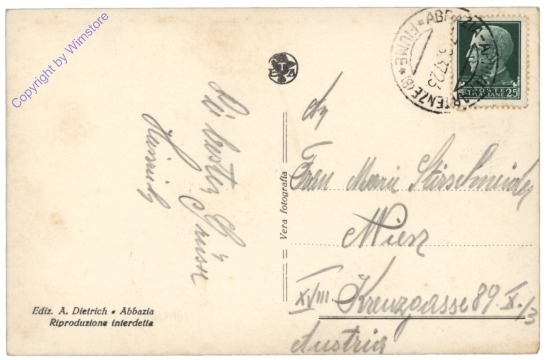 Copyright by Wimstore
ABBAZIA
PARTENZE (B)
* FIUME *
POSTE
ITALIANE
25
Die besten
Grüsse
Heinrich
Ediz. A. Dietrich • Abbazia
Riproduzione interdetta
Vera fotografia
An
Frau Marie
Wien
XVIII Kreuzgasse 89 X./3
Austria